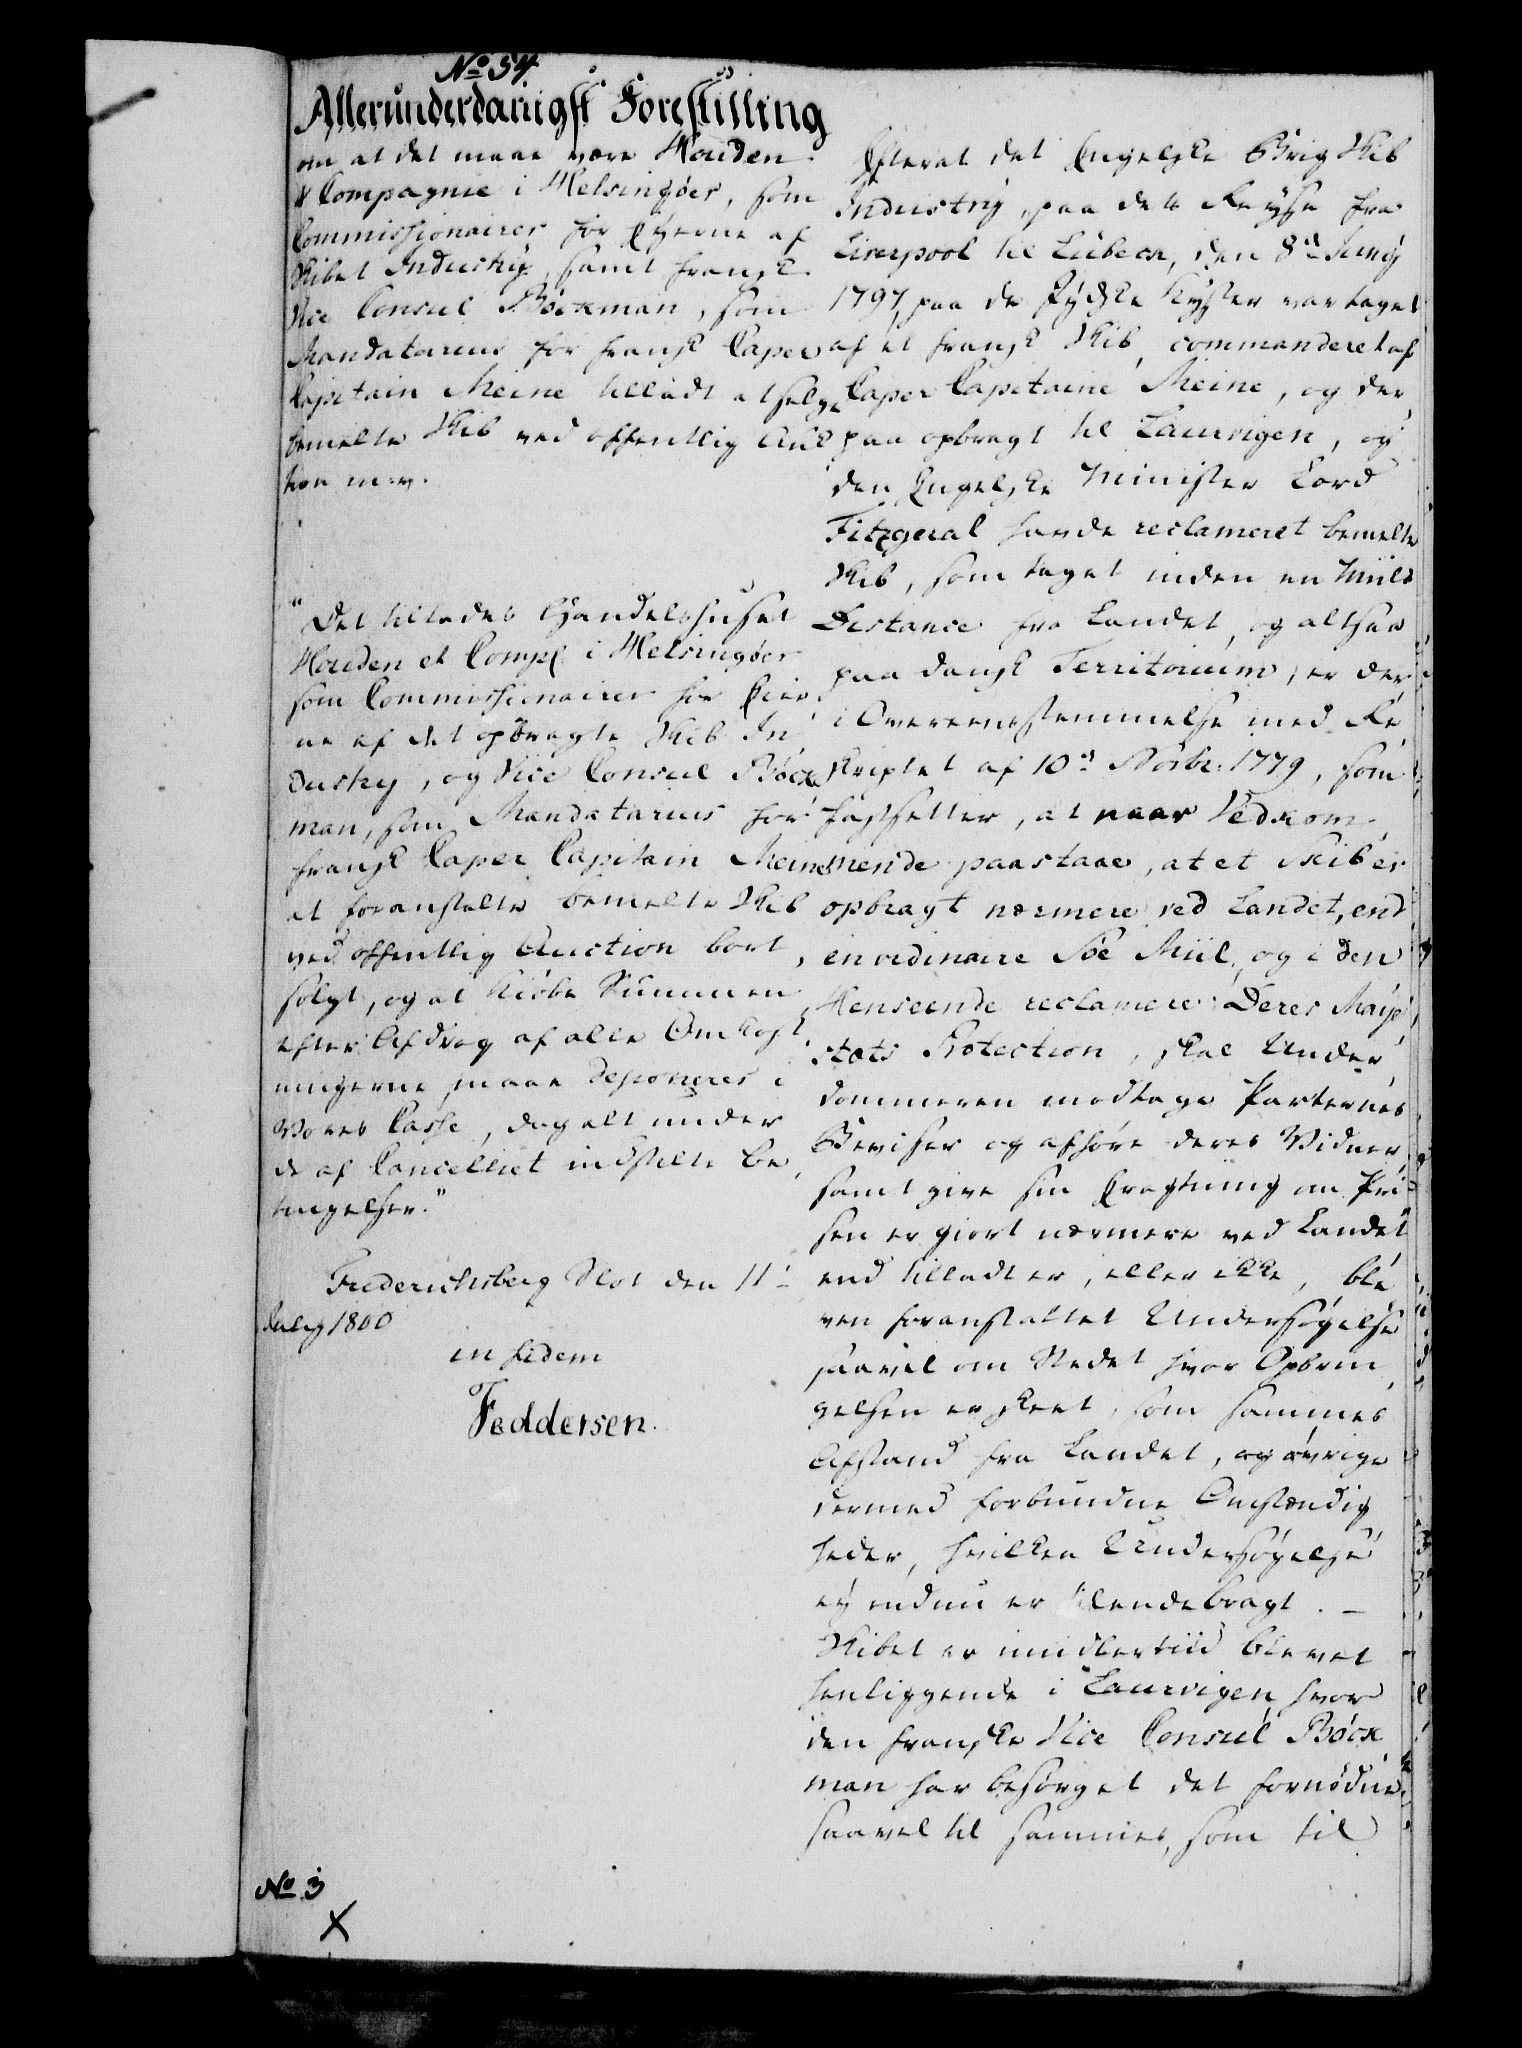 No 54
Allerunderdanigst Forestilling
om at det maae være Houden
& Compagnie i Helsingøer, som
Commissionairer for Eyerne af
Skibet Industry, samt fransk
Vice Consul Böckman, som
Mandatarius for fransk Caper
Capitain Meine tilladt at selge
bemelte Skib ved offentlig Auc
tion m: v.
"Det tillades Handelshuset
Houden et Comp: i Helsingøer
som Commissionairer for Eier
ne af det opbragte Skib In
dustry, og Vice Consul Böck
man, som Mandatarius for
fransk Caper Capitain Meine
at foranstalte bemelte Skib
ved offentlig Auction bort
solgt, og at Kiöbe Summen
efter Afdrag af alle Omkost
ningerne maae deponeres i
Vores Casse, dog alt under
de af Cancelliet indstilte Be
tingelser."
Friderichsberg Slot den 11te
July 1800
in fidem
Feddersen.
No 3
X
Efterat det Engelske Brig Skib
Industry, paa dets Reyse fra
Liverpool til Lübeck, den 8de Juny
1797, paa de Jydske Kyster var taget
af et fransk Skib, commanderet af
Caper Capitaine Meine, og der
paa opbragt til Laurvigen, og
den Engelske Minister Lord
Fitzgeral havde reclameret bemelte
Skib, som taget inden en Miils
Distance fra Landet, og altsaa
paa dansk Territorium, er der
i Overeensstemmelse med Re
skriptet af 10de Novbr: 1779, som
fastsetter, at naar Vedkom
mende paastaae, at et Skib er
opbragt nærmere ved Landet, end
en ordinaire Söe Miil, og i den
Henseende reclamere Deres Maje
stæts Protection, skal Under
dommeren modtage Parternes
Beviser og afhøre deres Vidner
samt give sin Eragtning om Pri
sen er giort nærmere ved Landet
end tilladt er, eller ikke, ble
ven foranstaltet Undersøgelse
saavel om Stedet hvor Opbrin
gelsen er skeet, som sammes
Afstand fra Landet, og övrige
dermed forbundne Omstændig
heder, hvilken Undersøgelse
ey endnu er tilendebragt. –
Skibet er imidlertiid blevet
henliggende i Laurvigen, hvor
den franske Vice Consul Böck
man har besörget det fornödne
saavel til sammes, som til